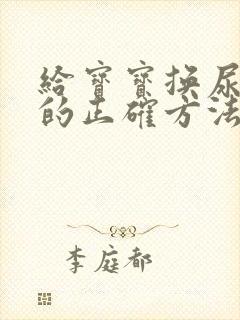 給寶寶換尿
的正確方法
李庭都